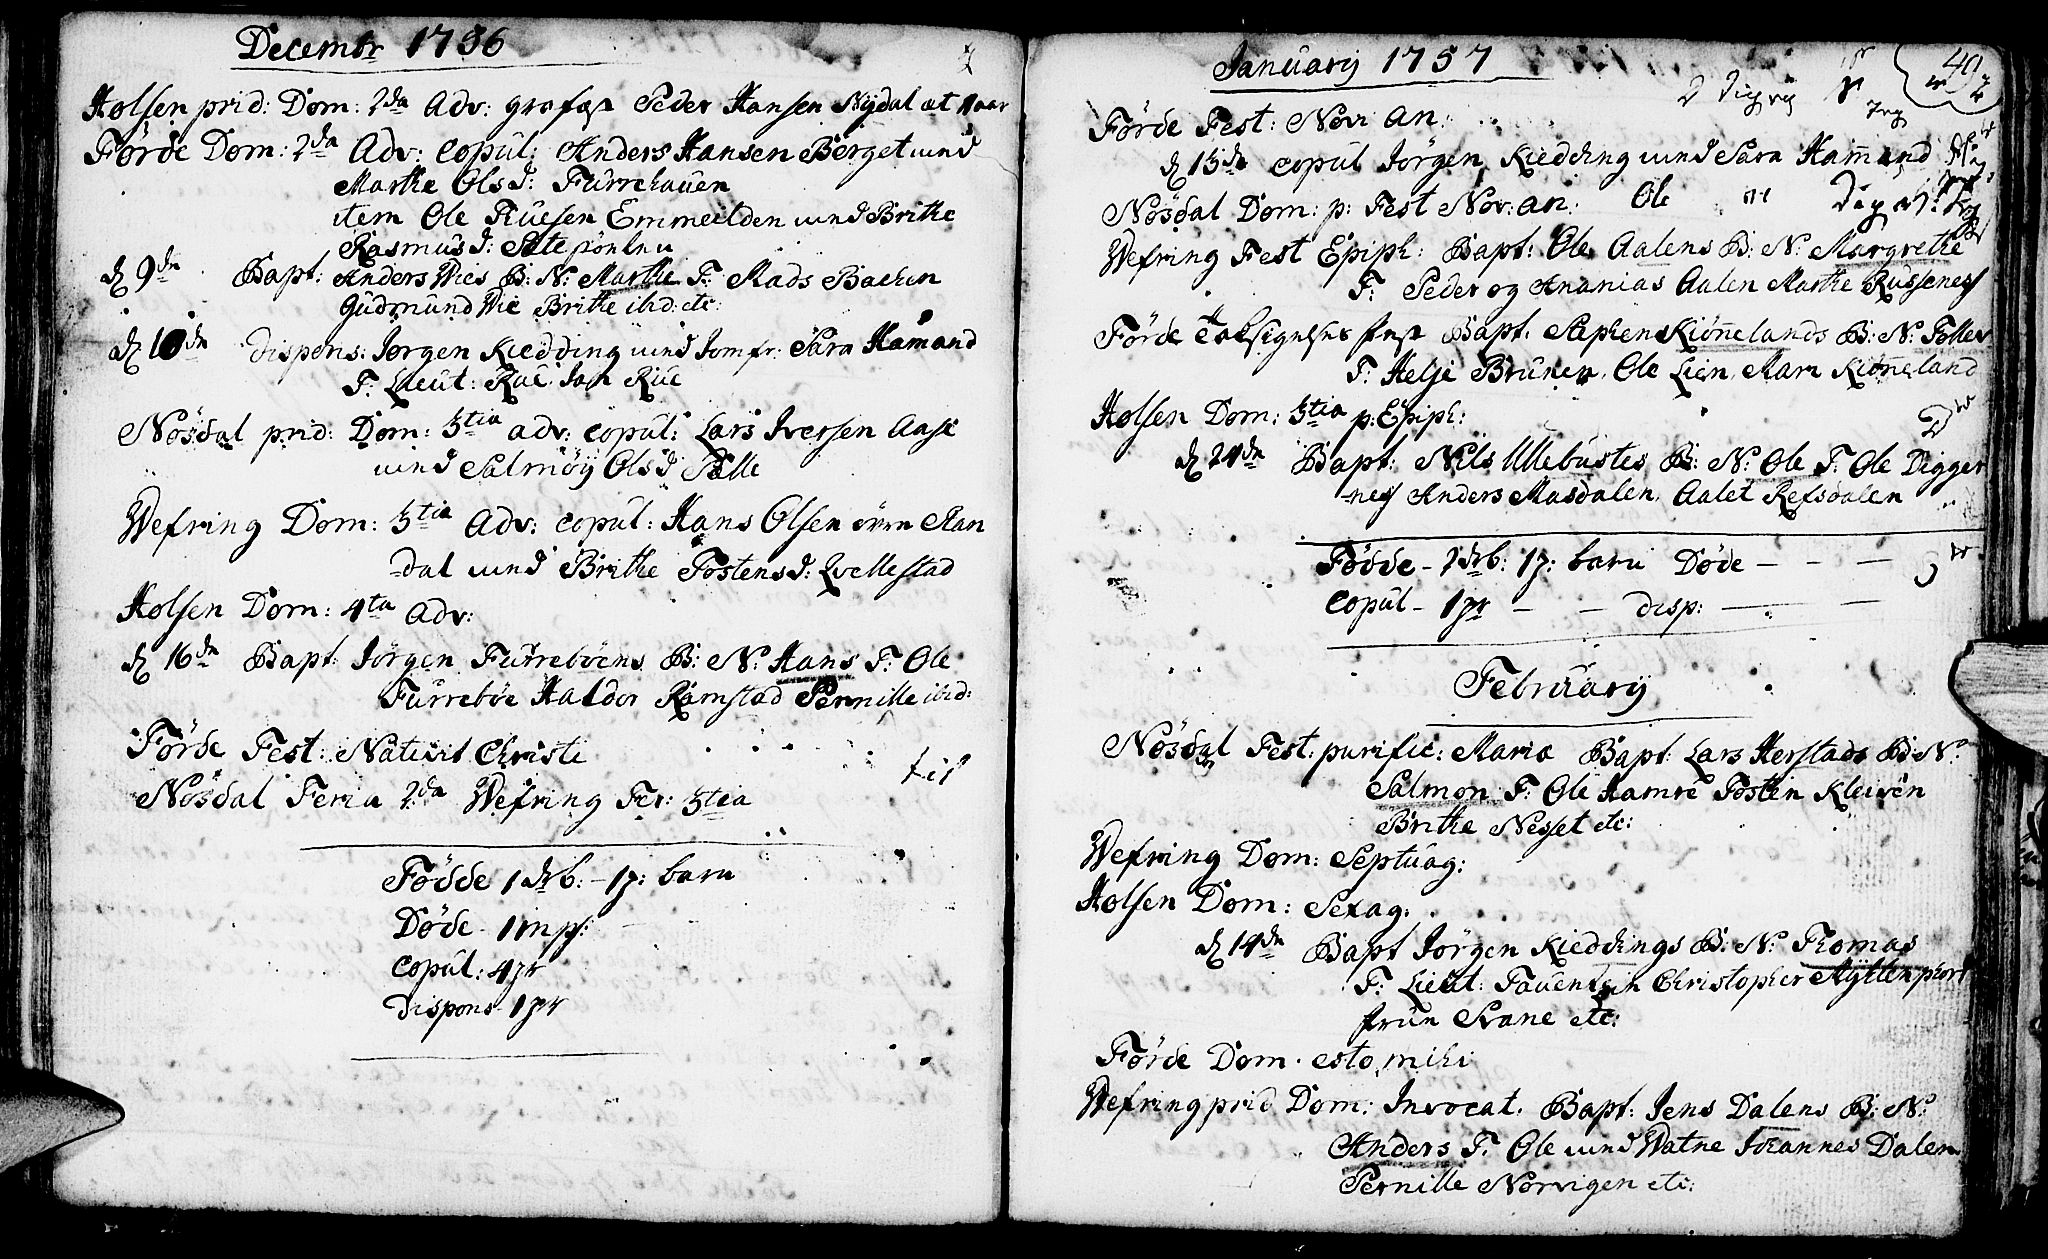 Decembr 1736
Holsen prid: Dom: 2da Adv: grafæst Peder Hansen Nydal æt 1 aar
Förde Dom: 2da Adv: Copul: Anders Hansen Berget und
Marthe Olsd: Furrehauen
item Ole Emmeilden und Brithe
Rasmusd:
d 9de Bapt: Anders Vies B: N: Marthe F: Mads Bachen
Gudmund Vie Brithe ibid: etc:
d 10de Dispens: Jörgen Kiedding und Jomfr: Sara Hamand
F: Lieut: Rue Jan Rue
Nösdal prid: Dom: 3tia adv: copul: Lars Iversen Aase
und Salmöy Olsd Sälle
Wefring Dom: 3tia Adv: copul: Hans Olsen Man
dal und Brithe Tostensd: Qvellestad
Holsen Dom: 4ta Adv:
d 16de Bapt: Jörgen Furreböens B: N: Hans F: Ole
Furreböe Haldor Ramstad Pernille ibid:
Förde Fest: Nativit Christi
til
Nösdal Feria 2da Wefring Fer: 3tia
Födde 1 drb: - 1 p: barn
Döde - 1 mpf:
Copul: 4 pr
Dispens - 1 pr
January 1737
40
Förde Fest: Novi An:
d 13de copul Jörgen Kiedding und Sara Hamand
Nösdal Dom: p: Fest Nov: an: Ole
Wefring Fest Epiph: Bapt: Ole Aalens B: N: Margrethe
F: Peder og Ananias Aalen Marthe Russenes
Förde Taksigelses fest Bapt: Stephens Kiönnelands B: N: Tolleu
F: Helje Brunen, Ole Lien, Mari Kiönneland
Holsen Dom: 3tia p: Epiph:
d 24de Bapt: Nils Ullebustes B: N: Ole F: Ole Digger
nes Anders Masdalen, Aalet Refsdalen
Födde - 2 drb: 1 p: barn Döde - - -
Copul - 1 pr - - disp: - -
February
Nösdal Fest: purific: Mariæ Bapt: Lars Herstads B: N:
Salmon F: Ole Hamre Tosten Kleiven
Brithe Nesset etc:
Wefring Dom: Septuag:
Holsen Dom: Sexag:
d 14de Bapt Jörgen Kieddings B: N: Thomas
F: Lieut: Christopher Myklenphort
frun Svane etc:
Förde Dom. esto mihi
Wefring prid Dom: Invocat. Bapt: Jens Dalens B: N:
Anders F: Ole und Watne Johannes Dalen
Pernille Norvigen etc: